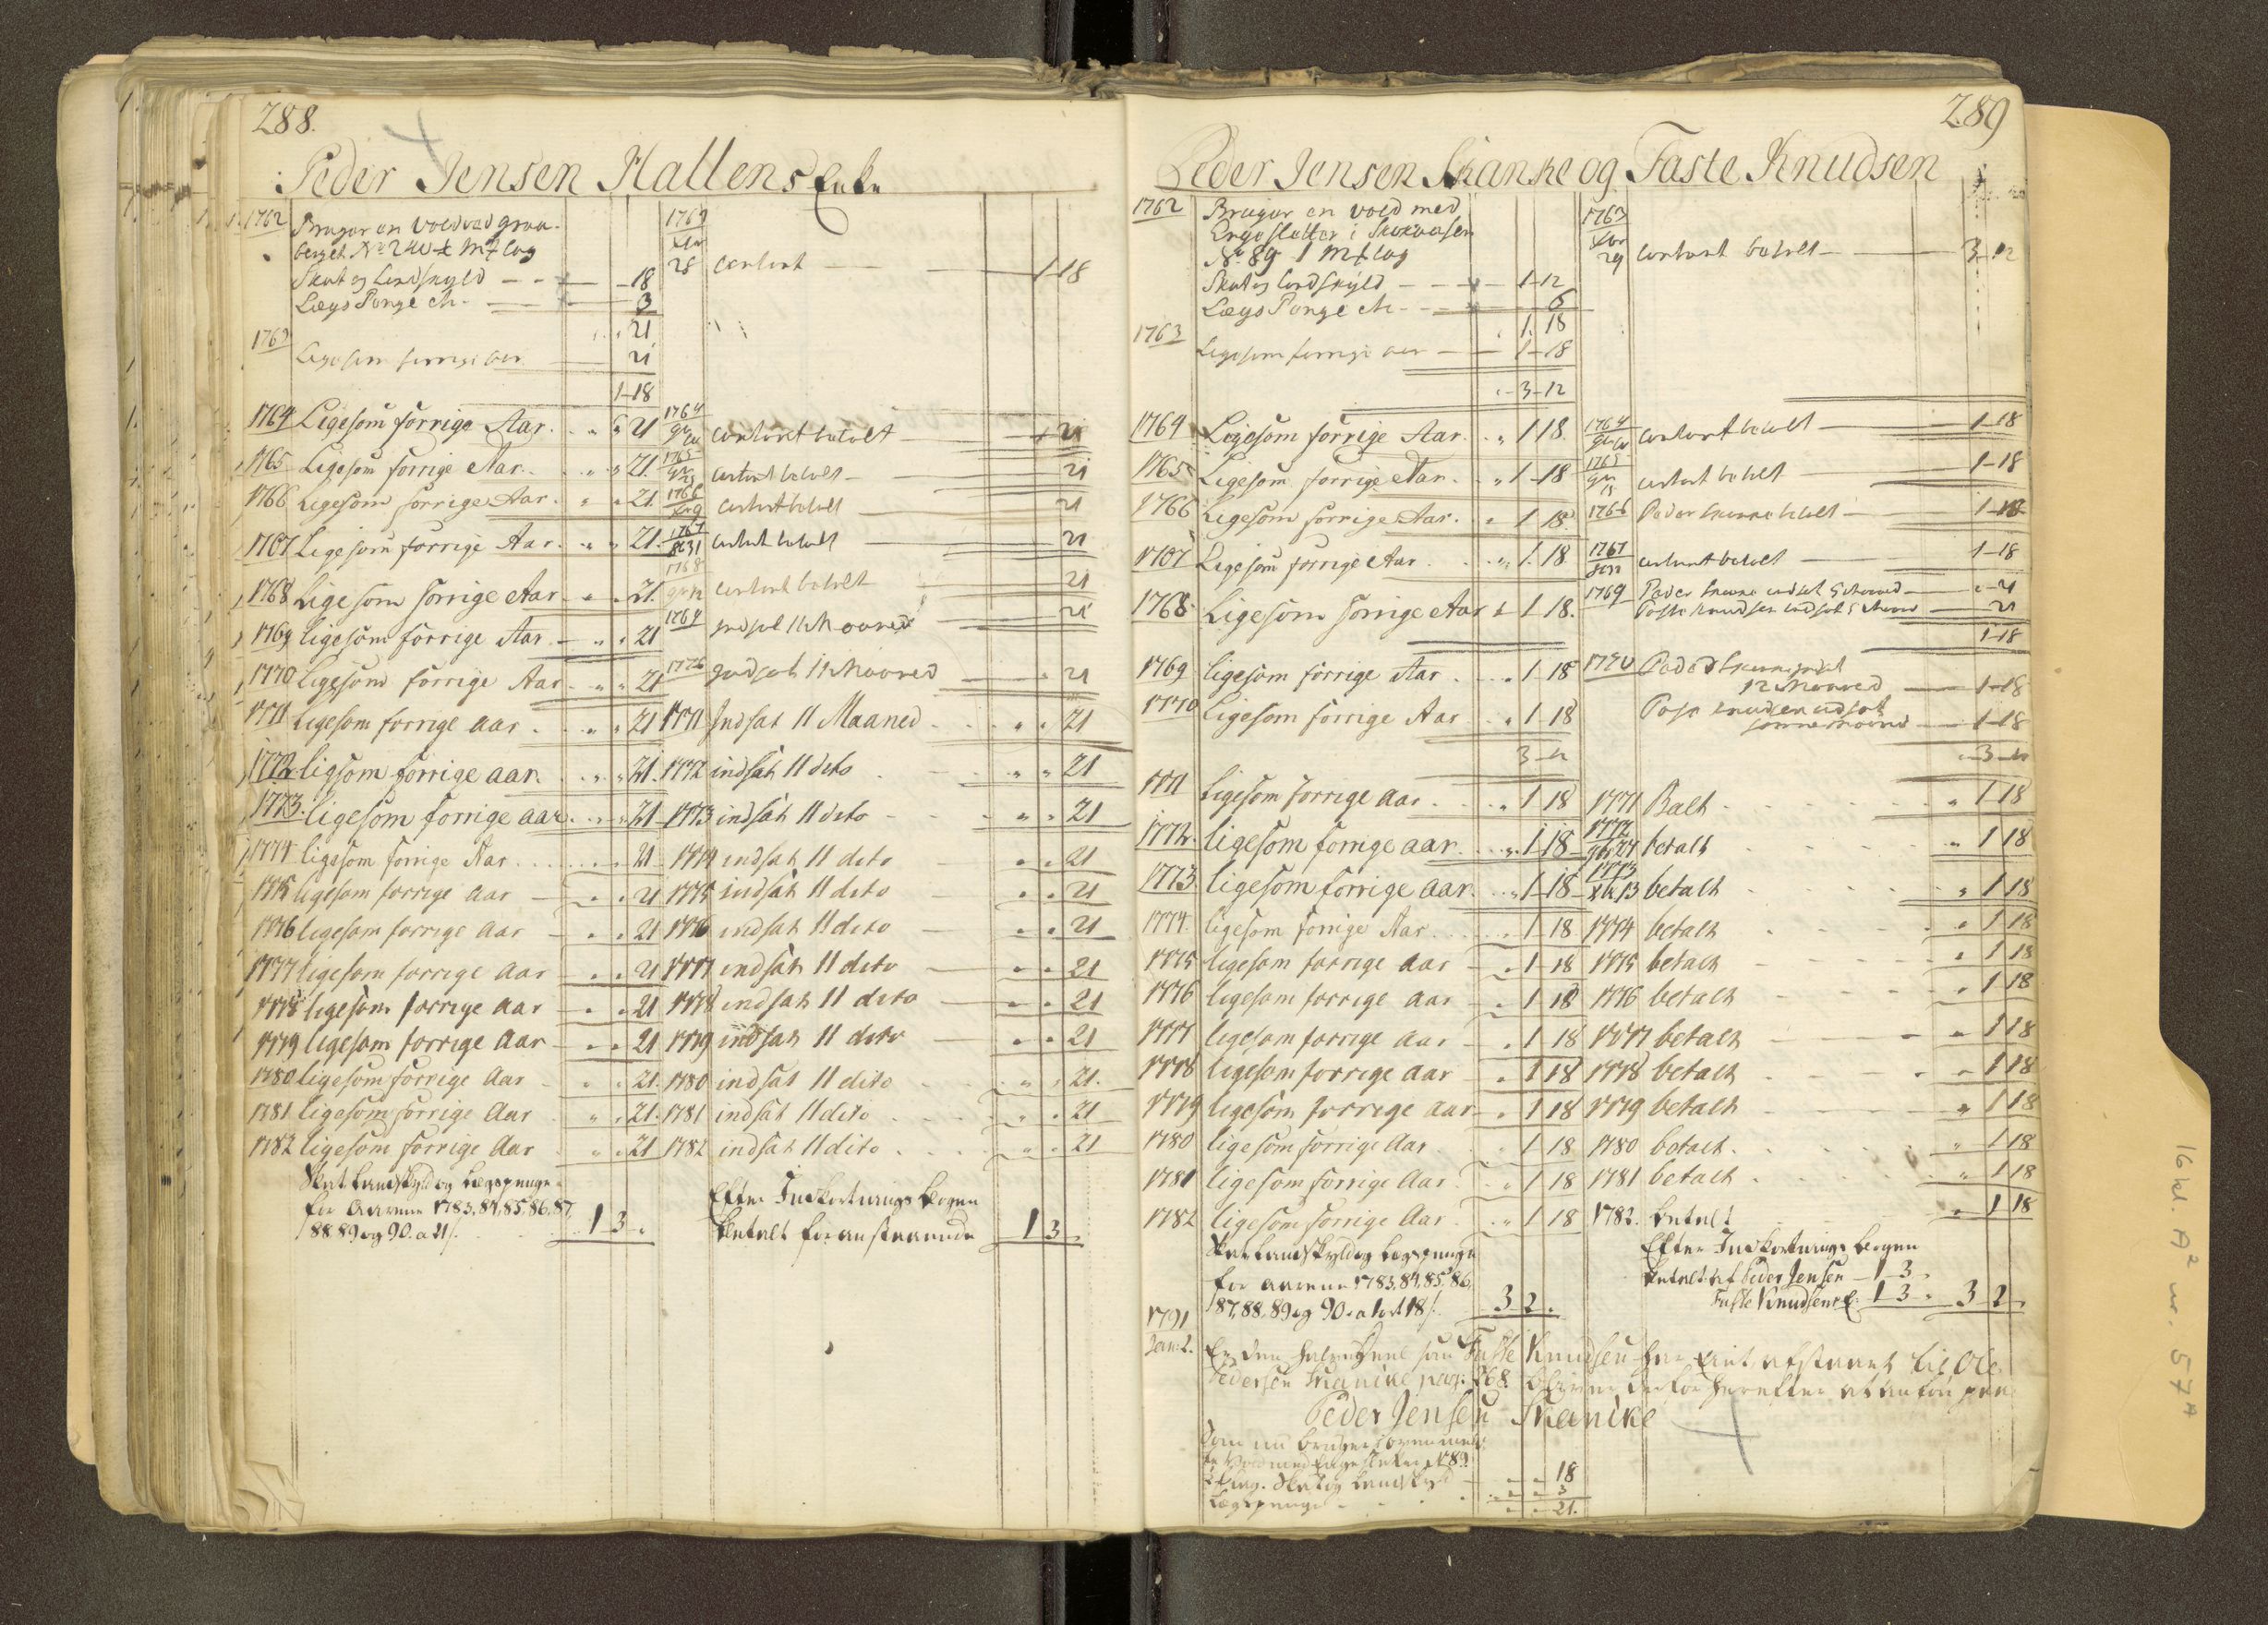 288.
Peder Jensen Hallens Enke
1762 Bruger en Vold ved graa-
berget No 240 ½ Mk lag
Skat og Landskyld - - 18
Lægs Penge - 3
21
1763 Ligesom forrige aar 21
1-18
1763
28 contant 1-18
1764 Ligesom forrige Aar. 21 1764 contant betalt 21
1765 Ligesom forrige Aar. 21. 1765 contant betalt 21
1766 Ligesom forrige Aar. 21. 1766 contant betalt 21
1767 Ligesom forrige Aar. 21. 1767 contant betalt 21
1768 Ligesom forrige Aar 21. 1768 contant betalt 21
1769 ligesom forrige Aar 21 1769 indsat 11 Maaned 21
1770 ligesom forrige Aar 21 1770 indsat 11 Maaned 21
1771 Ligesom forrige aar 21 1771 Indsat 11 Maaned 21
1772 ligsom forrige aar. 21. 1772 indsat 11 dito 21
1773. ligesom forrige aar. 21 1773 indsat 11 dito 21
1774 ligesom forrige Aar 21 1774 indsat 11 dito 21
1775 ligesom forrige aar 21 1775 indsat 11 dito 21
1776 ligesom forrige aar 21 1776 indsat 11 dito 21
1777 ligesom forrige aar 21 1777 indsat 11 dito 21
1778 ligesom forrige aar 21 1778 indsat 11 dito 21
1779 ligesom forrige aar 21 1779 indsat 11 dito 21
1780 ligesom forrige Aar 21. 1780 indsat 11 dito 21.
1781 ligesom forrige Aar 21. 1781 indsat 11 dito 21
1782 ligesom forrige Aar 21 1782 indsat 11 dito 21
Skat Landskyld og Lægspenge
for Aarene 1783, 84, 85, 86, 87,
88. 89 og 90. a 21 s. 1 3.
Efter Inkortnings Bogen
betalt foranstaaende 1 3.
289
Peder Jensen Skanke og Faste Knudsen
1762 Bruger en Vold med
Enge sletter i Skokaasen
No 89 1 Mk lag
Skat og landskyld - - 1-12
Lægs Penge - 6
1. 18
1763 Ligesom forrige aar 1-18
3-12
1763
29 contant betalt 3-12
1764 Ligesom forrige Aar. 1 18. 1764 contant betalt 1-18
1765 Ligesom forrige Aar. 1-18 1765 contant betalt 1-18
1766 Ligesom forrige Aar. 1 18 1766 Peder Skanke betalt 1-18
1767 Ligesom forrige Aar 1. 18 1767 contant betalt 1-18
1768 Ligesom forrige Aar 1 18. 1769 Peder Skanke indsat 21
Faste Knudsen indsat 21
1-18
1769 ligesom forrige Aar 1-18 1770 Peder Skanke indsat
12 Maaned 1-18
1770 Ligesom forrige Aar 1-18 Faste Knudsen indsat
samme maaned 1-18
3-12 3-12
1771 Ligesom forrige aar 1 18 1771 Balt 1 18
1772. ligesom forrige aar 1 18 1772 betalt 1 18
1773. ligesom forrige aar 1-18 1773 13 betalt 1 18
1774. ligesom forrige Aar 1 18 1774 betalt 1 18
1775 ligesom forrige aar 1-18 1775 betalt 1 18
1776 ligesom forrige aar 1 18 1776 betalt 1 18
1777 ligesom forrige aar 1 18 1777 betalt 1 18
1778 ligesom forrige aar 1 18 1778 betalt 1 18
1779 ligesom forrige aar 1 18 1779 betalt 1 18
1780 ligesom forrige Aar 1 18 1780 betalt. 1 18
1781 ligesom forrige Aar 1 18 1781 betalt 1 18
1782 ligesom forrige Aar 1 18 1782. betalt 1 18
Skat Landskyld og Lægspenge
for Aarene 1783, 84, 85, 86,
87, 88, 89 og 90. a 1 ort 18 s. 3 2.
Efter Inkortnings Bogen
betalt af Peder Jensen 1 3.
Faste Knudsen 1 3. 3 2.
1791
Jan: 2. Er den halve Deel som Faste Knudsen har eiet, afstaaet til Ole
Pedersen Skancke pag: 268. bliver derfor herefter at anføre paa
Peder Jensen Skancke
som nu bruger
Vold med Enge sletter No 89
lag. Skat og Landskyld 18
Lægspenge 3
21.
16 kl. A² nr. 57 A